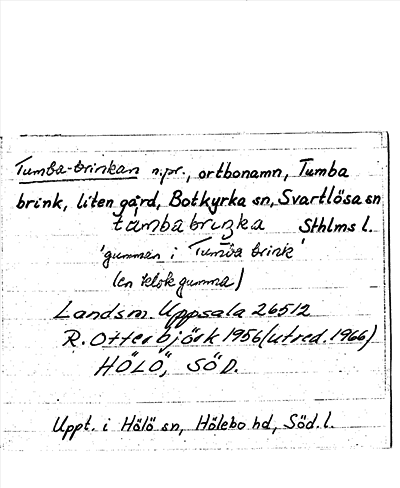 Tumba-brinkan n.pr., ortbonamn, Tumba
brink, liten gård, Botkyrka sn, Svartlösa sn
Sthlms l.
'gumman i Tumba brink'
(en klok gumma)
Landsm. Uppsala 26512
R. Otterbjörk 1956 (utred. 1966)
HÖLÖ, SÖD.
Uppt. i Hölö sn, Hölebo hd, Söd. l.